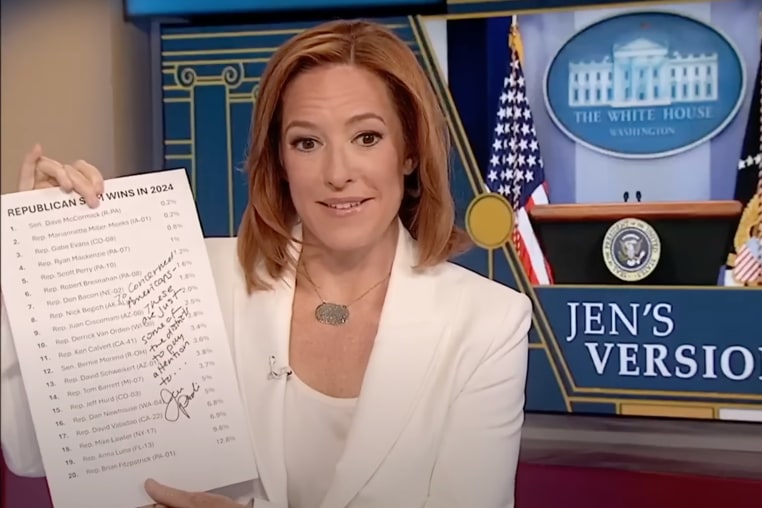 REPUBLICAN WINS IN 2024
1. Sen. Dave McCormick (R-PA) 0.2%
2. Rep. Mariannette Miller-Meeks (IA-01) 0.2%
3. Rep. Gabe Evans (CO-08)
4. Rep. Ryan Mackenzie (PA-07) 1%
5. Rep. Scott Perry (PA-10)
6. Rep. Robert Bresnahan (PA-08)
7. Rep. Don Bacon (NE-02) 1.8%
8. Rep. Nick Begich
9. Rep. Juan Ciscomani
10. Rep. Derrick Van Orden
11. Rep. Ken Calvert (CA-41) 3.4%
12. Sen. Bernie Moreno (R-OH) 3.6%
13. Rep. David Schweikert 3.8%
14. Rep. Tom Barrett (MI-07) 3.7%
15. Rep. Jeff Hurd (CO-03) 5%
16. Rep. Dan Newhouse 5%
17. Rep. David Valadao (CA-22) 6.8%
18. Rep. Mike Lawler (NY-17)
19. Rep. Anna Luna (FL-13)
20. Rep. Brian Fitzpatrick (PA-01) 12.8%
To Concerned
Americans-
These
are just
some of
the districts
to pay
attention
to...
Jen
THE WHITE HOUSE
WASHINGTON
JEN'S